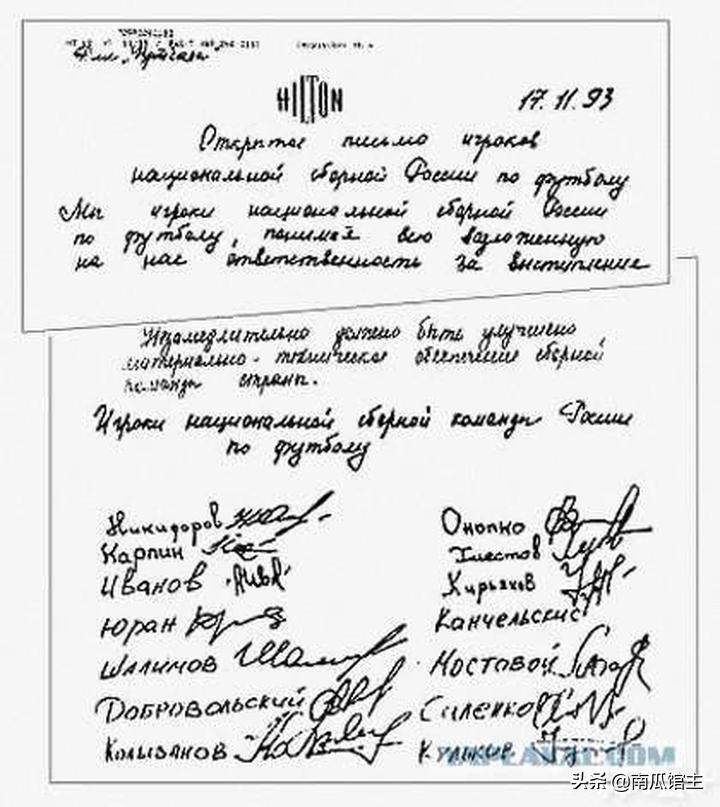 HILTON
17.11.93
Открытое письмо игроков
национальной сборной России по футболу
Мы игроки национальной сборной России
по футболу, понимая всю возложенную
на нас ответственность за выступление
Незамедлительно должно быть улучшено
материально-техническое обеспечение сборной
команды страны.
Игроки национальной сборной команды России
по футболу
Никифоров
Онопко
Карпин
Хлестов
Иванов
Кирьяков
Юран
Канчельскис
Шалимов
Мостовой
Добровольский
Саленко
Колыванов
Кульков
YAPLAKAL.COM
头条 @南瓜馆主